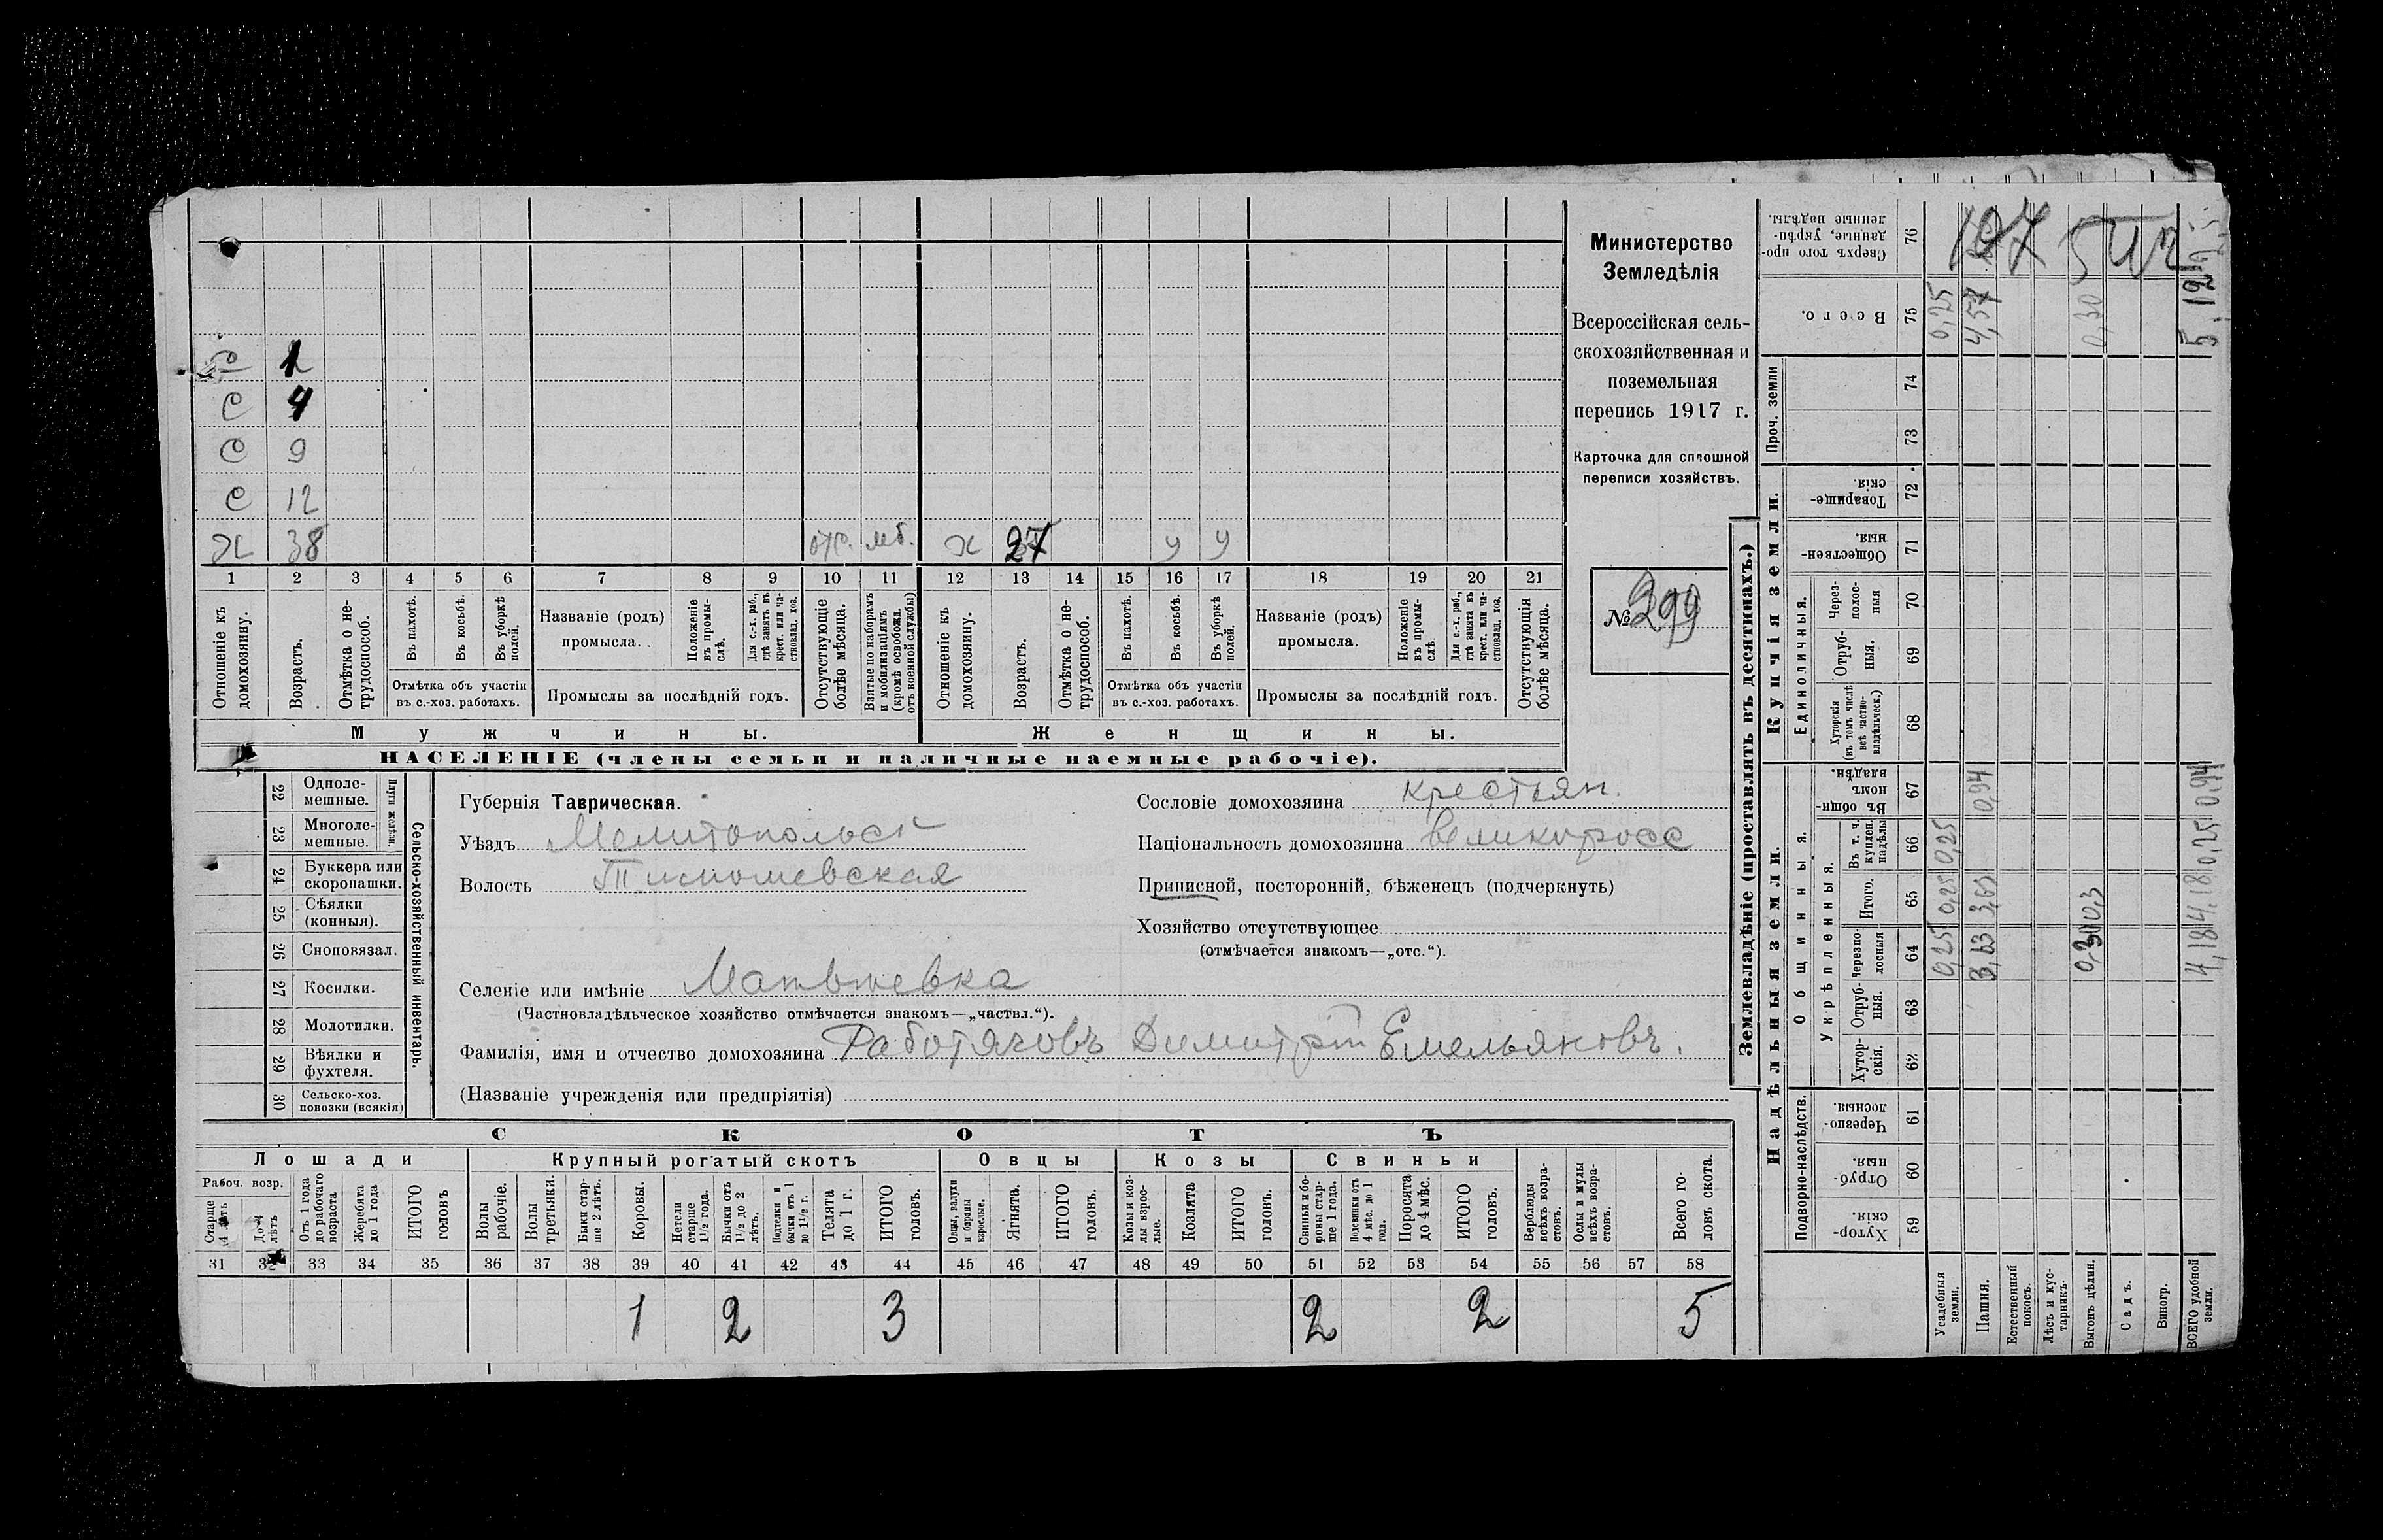 Министерство
Земледѣлія
Всероссійская сель-
скохозяйственная и
поземельная
перепись 1917 г.
Карточка для сплошной
переписи хозяйствъ.
№ 299
С 1
С 4
С 9
С 12
Х 38 отс. мб. х 27 у у
1 2 3 4 5 6 7 8 9 10 11 12 13 14 15 16 17 18 19 20 21
Отношеніе къ домохозяину.
Возрастъ.
Отмѣтка о не-трудоспособ.
Въ пахотѣ.
Въ косьбѣ.
Въ уборкѣ полей.
Отмѣтка объ участіи
въ с.-хоз. работахъ.
Названіе (родъ)
промысла.
Положеніе въ промы-слѣ.
Для с.-х. раб., гдѣ занятъ въ крест. или ча-стновлад. хоз.
Промыслы за послѣдній годъ.
Отсутствующіе болѣе мѣсяца.
Взятые по наборамъ и мобилизаціямъ (кромѣ освобожд. отъ военной службы)
Отношеніе къ домохозяину.
Возрастъ.
Отмѣтка о не-трудоспособ.
Въ пахотѣ.
Въ косьбѣ.
Въ уборкѣ полей.
Отмѣтка объ участіи
въ с.-хоз. работахъ.
Названіе (родъ)
промысла.
Положеніе въ промы-слѣ
Для с.-х. раб., гдѣ занята въ крест. или ча-стновлад. хоз.
Промыслы за послѣдній годъ.
Отсутствующія болѣе мѣсяца.
Мужчины.
Женщины.
НАСЕЛЕНІЕ (члены семьи и наличные наемные рабочіе).
22 Одноле-мешные.
23 Многоле-мешные.
Плуги желѣзн.
24 Буккера или скоропашки.
25 Сѣялки (конныя).
26 Сноповязал.
27 Косилки.
28 Молотилки.
29 Вѣялки и фухтеля.
30 Сельско-хоз. повозки (всякія)
Сельско-хозяйственный инвентарь.
Губернія Таврическая.
Уѣздъ Мелитопольск
Волость Тимошевская
Селеніе или имѣніе Матвѣевка
(Частновладѣльческое хозяйство отмѣчается знакомъ—„частвл.“).
Фамилія, имя и отчество домохозяина Работяговъ Димитрій Емельяновъ.
(Названіе учрежденія или предпріятія)
Сословіе домохозяина крестьян.
Національность домохозяина великоросс
Приписной, посторонній, бѣженецъ (подчеркнуть)
Хозяйство отсутствующее
(отмѣчается знакомъ—„отс.“).
СКОТЪ
Лошади
Крупный рогатый скотъ
Овцы
Козы
Свиньи
Рабоч. возр.
Старше 4 лѣтъ
До 4 лѣтъ
Отъ 1 года до рабочаго возраста
Жеребята до 1 года
ИТОГО головъ
Волы рабочіе.
Волы третьяки.
Быки стар-ше 2 лѣтъ.
Коровы.
Нетели старше 1½ года.
Бычки отъ 1½ до 2 лѣтъ.
Подтелки и бычки отъ 1 до 1½ г.
Телята до 1 г.
ИТОГО головъ.
Овцы, валухи и бараны взрослые.
Ягнята.
ИТОГО головъ.
Козы и коз-лы взрос-лые.
Козлята
ИТОГО головъ.
Свиньи и бо-ровы стар-ше 1 года.
Подсвинки отъ 4 мѣс. до 1 года.
Поросята до 4 мѣс.
ИТОГО головъ.
Верблюды всѣхъ возра-стовъ.
Ослы и мулы всѣхъ возра-стовъ.
Всего го-ловъ скота.
31 32 33 34 35 36 37 38 39 40 41 42 43 44 45 46 47 48 49 50 51 52 53 54 55 56 57 58
1 2 3 2 2 5
Землевладѣніе (проставлять въ десятинахъ.)
Надѣльныя земли.
Купчія земли.
Проч. земли
Подворно-наслѣдств.
Общинныя.
Укрѣпленныя.
Единоличныя.
Хутор-скія. 59
Отруб-ныя. 60
Черезпо-лосныя. 61
Хутор-скія. 62
Отруб-ныя. 63
Черезпо-лосныя 64
Итого. 65
Въ т. ч. куплен. надѣлы 66
Въ общи-номъ владѣн. 67
Хуторскія (въ томъ числѣ всѣ частно-владѣльческ.) 68
Отруб-ныя. 69
Через-полос-ныя 70
Обществен-ныя. 71
Товарище-скія. 72
73
74
Всего. 75
Сверхъ того про-данные, укрѣп-ленные надѣлы. 76
Усадебныя земли. 0,25 0,25 0,25 0,25
Пашня. 3,63 3,63 0,94 4,57
Естественный покосъ.
Лѣсъ и кус-тарникъ.
Выгонъ цѣлин. 0,30 0,3 0,30
Садъ.
Виногр.
ВСЕГО удобной земли. 4,18 4,18 0,25 0,94 5,12